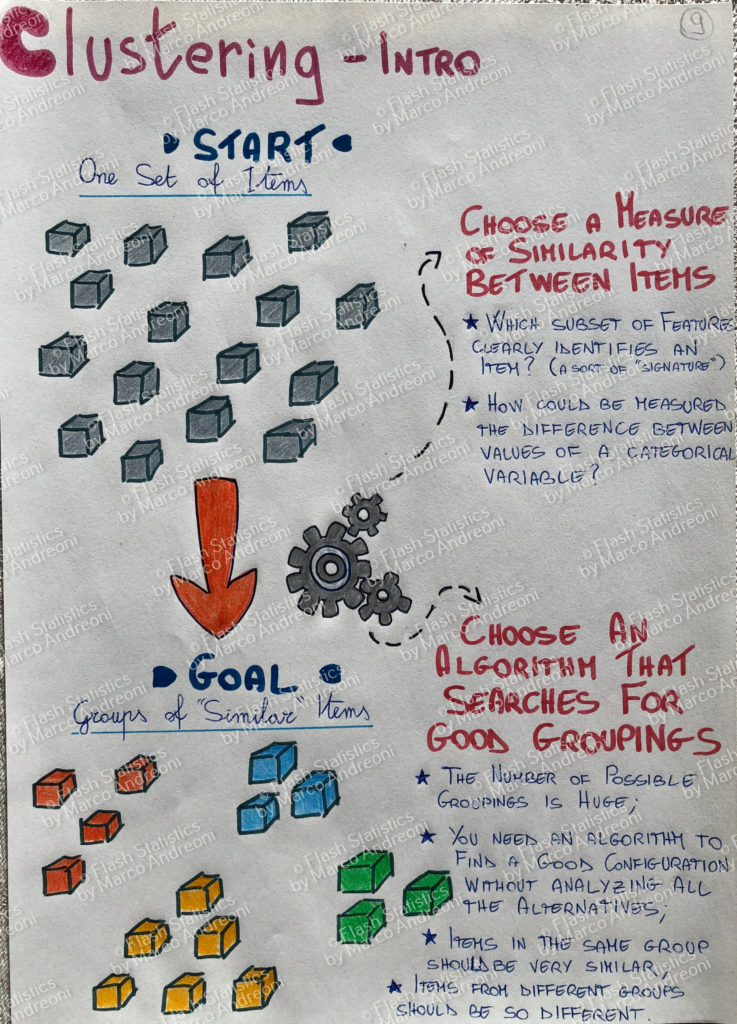 Clustering - INTRO
9
START
One Set of Items
CHOOSE A MEASURE
OF SIMILARITY
BETWEEN ITEMS
★ WHICH SUBSET OF FEATURES
CLEARLY IDENTIFIES AN
ITEM? (A SORT OF "SIGNATURE")
★ HOW COULD BE MEASURED
THE DIFFERENCE BETWEEN
VALUES OF A CATEGORICAL
VARIABLE?
GOAL
Groups of "Similar" Items
CHOOSE AN
ALGORITHM THAT
SEARCHES FOR
GOOD GROUPINGS
★ THE NUMBER OF POSSIBLE
GROUPINGS IS HUGE;
★ YOU NEED AN ALGORITHM TO
FIND A GOOD CONFIGURATION
WITHOUT ANALYZING ALL
THE ALTERNATIVES;
★ ITEMS IN THE SAME GROUP
SHOULD BE VERY SIMILAR;
★ ITEMS FROM DIFFERENT GROUPS
SHOULD BE SO DIFFERENT.
© Flash Statistics
by Marco Andreoni